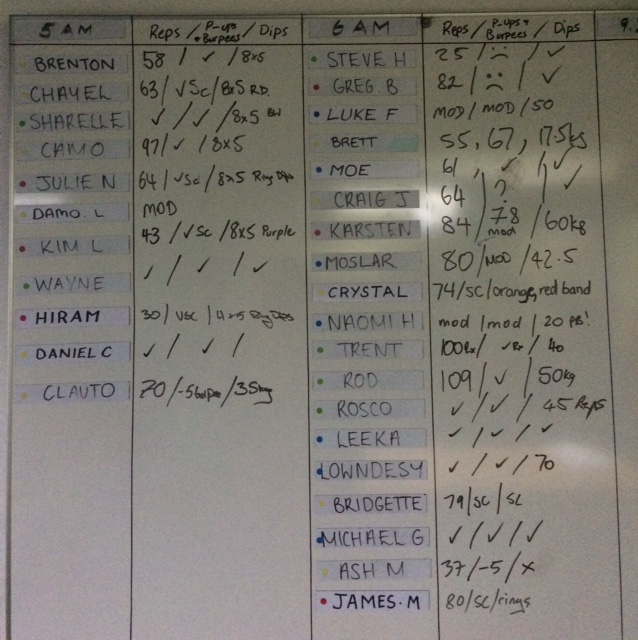 5 AM Reps / P-ups + Burpees / Dips
BRENTON 58 / ✓ / 8x5
CHAYEL 63 / ✓Sc / 8x5 RD.
SHARELLE ✓ / ✓ / 8x5 BW
CAMO 97 / ✓ / 8x5
JULIE N 64 / ✓Sc / 8x5 Ring Dips
DAMO. L MOD
KIM L 43 / ✓Sc / 8x5 Purple
WAYNE ✓ / ✓ / ✓
HIRAM 30 / ✓SC / 4x15 Ring Dips
DANIEL C ✓ / ✓ /
CLAUTO 70 / -5 / 35kg
6 AM Reps / P-ups + Burpees / Dips
STEVE H 25 / ☹ / ✓
GREG. B 82 / ☹ / ✓
LUKE F MOD / MOD / 50
BRETT 55, 67, 17.5kg
MOE 61, / ✓ / ✓
CRAIG J 64 / ? / ✓
KARSTEN 84 / 78 mod / 60kg
MOSLAR 80 / MOD / 42.5
CRYSTAL 74/SC/orange, red band
NAOMI H mod / mod / 20 PB!
TRENT 100Rx / ✓Rx / 40
ROD 109 / ✓ / 50kg
ROSCO ✓ / ✓ / 45 Reps
LEEKA ✓ / ✓ / ✓
LOWNDESY ✓ / ✓ / 70
BRIDGETTE 79 / SC / SC
MICHAEL G ✓ / ✓ / ✓
ASH M 37 / -5 / x
JAMES.M 80 / SC / rings
9.